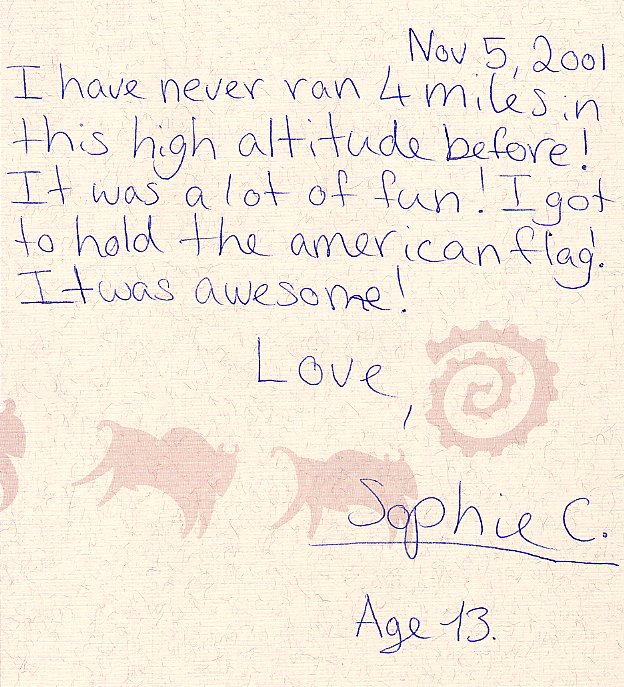 Nov 5, 2001
I have never ran 4 miles in
this high altitude before!
It was a lot of fun! I got
to hold the american flag!
It was awesome!
Love,
Sophie C.
Age 13.